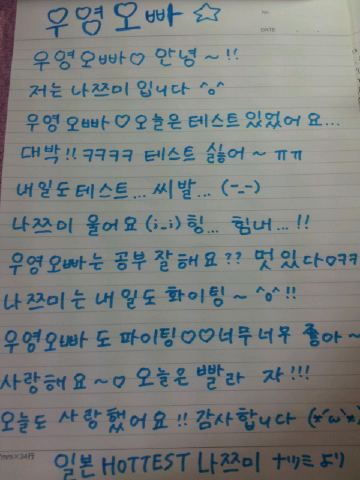 우영오빠 ☆
우영오빠♡ 안녕~!!
저는 나쯔미입니다 ^o^
우영오빠♡오늘은테스트있었어요...
대박!!ㅋㅋㅋㅋ 테스트 싫어~ㅠㅠ
내일도테스트... 씨발... (-_-)
나쯔미 울어요(;_;)힝... 힘내...!!
우영오빠는 공부 잘해요?? 멋있다ㅇㅋㅋ
나쯔미는 내일도 화이팅~ ^o^!!
우영오빠도 파이팅♡♡너무너무 좋아~
사랑해요~♡ 오늘은 빨라 자!!!
오늘도 사랑했어요!! 감사합니다 (*´ω`*)
일본 HOTTEST 나쯔미 ナツミ より